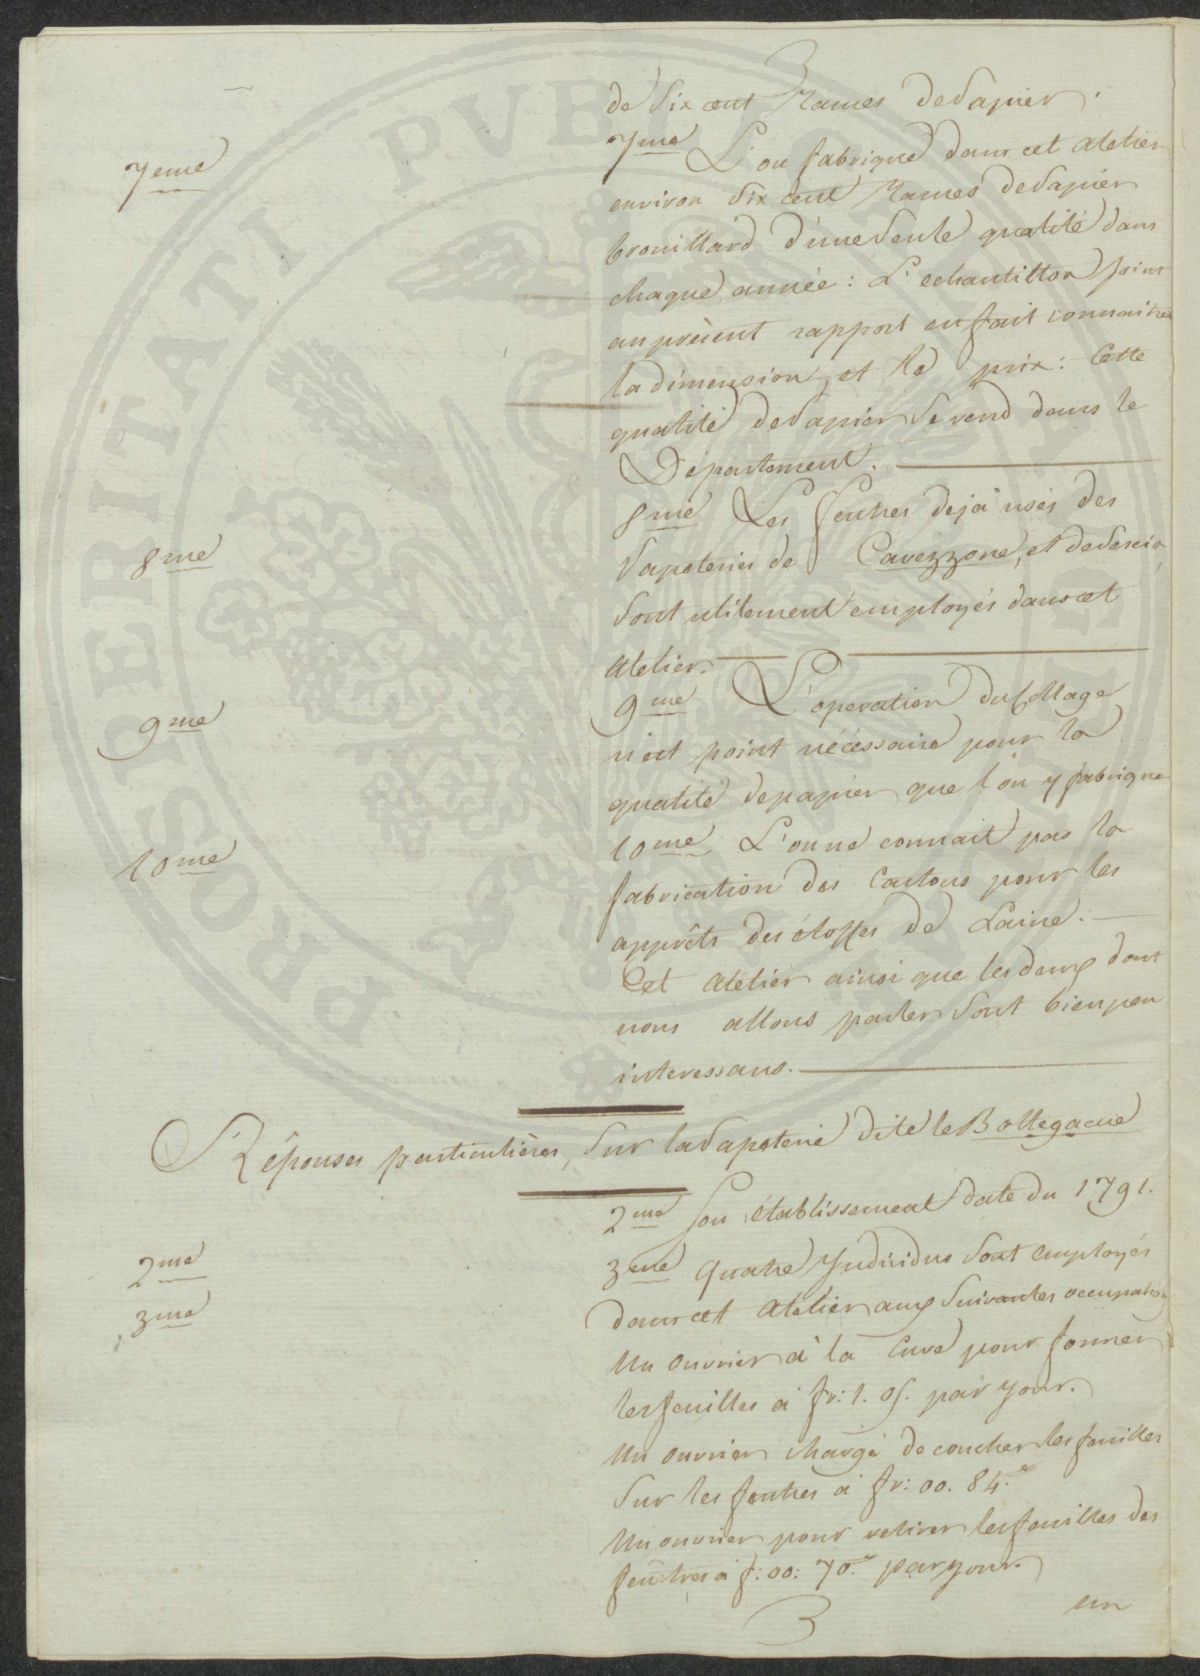 de Six cent Rames de Papier.
7eme
7me L'on fabrique dans cet Atelier
environ Six cent Rames de Papier
brouillard d'une Seule qualité dans
chaque année: L'echantillon joint
au présent rapport en fait connaitre
la dimension et le prix: Cette
qualité de Papier Se vend dans le
Département.
8me
8me Les feutres deja usés des
Papeteries de Cavezzone, et de
Sont utilement employés dans cet
Atelier.
9me
9me L'operation du Collage
n'est point nécéssaire pour la
qualité de papier que l'on y fabrique
10me
10me L'on ne connait pas la
fabrication des Cartons pour les
apprêts des étoffes de Laine.
Cet Atelier ainsi que les deux dont
nous allons parler Sont bien peu
interessans.
Réponses particulières, Sur la Papeterie dite le Bottegacue
2me
2me Son établissement date du 1791.
3me
3me Quatre Individus Sont employés
dans cet Atelier aux Suivantes occupations
Un ouvrier à la Cuve pour former
les feuilles à fr: 1. 05. par jour.
Un ouvrier chargé de coucher les feuilles
Sur les feutres à fr: 00. 84.c
Un ouvrier pour retirer les feuilles des
feutres à f: 00: 70.c par jour.
un